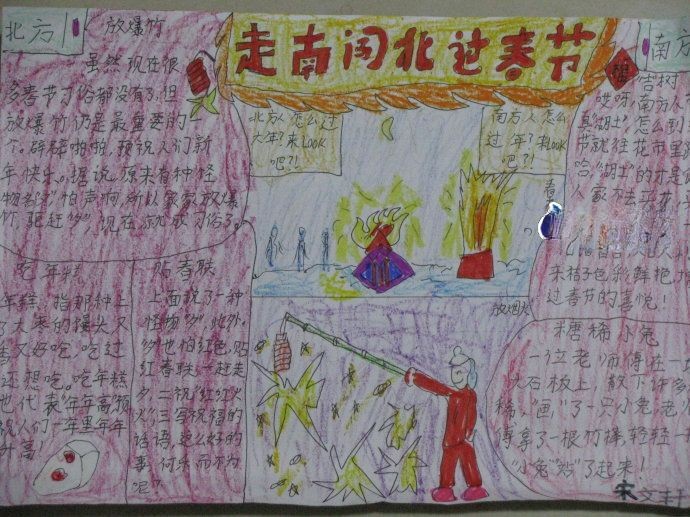 走南闯北过春节
北方
放爆竹
虽然现在很
多春节习俗都没有了,但
放爆竹仍是最重要的一
个。辟辟啪啪,预祝人们新
年快乐。据说,原来有种怪
物
怕声响,所以家家放爆
竹驱赶"夕",现在就成习俗了。
吃年糕
年糕,指那种上
了大枣的馒头又
香又好吃,吃过
还想吃。吃年糕
也代表"年年高",预
祝人们一年里年年
升高
贴春联
上面说了一种
怪物"夕",此外,
夕也怕红色,贴
红春联,一起走
夕,二祝红红火
火,三写祝福的
话语,这么好的
事,何乐而不为
呢?
北方人怎么过
大年?来LOOK
吧?!
南方人怎么
过年?来LOOK
吧?!
放烟火
南方
桔树
哎呀,南方人
真"糊土",怎么到
节就往花市里
哈,"糊土"的才是
人家不去买花
春
来桔子色彩鲜艳
过春节的喜悦!
糖稀小兔
一位老师傅在一
大石板上,放下许多
稀,"画"了一只小兔,老
傅拿了一根竹棒,轻轻一
"小兔"站"了起来!
宋文轩